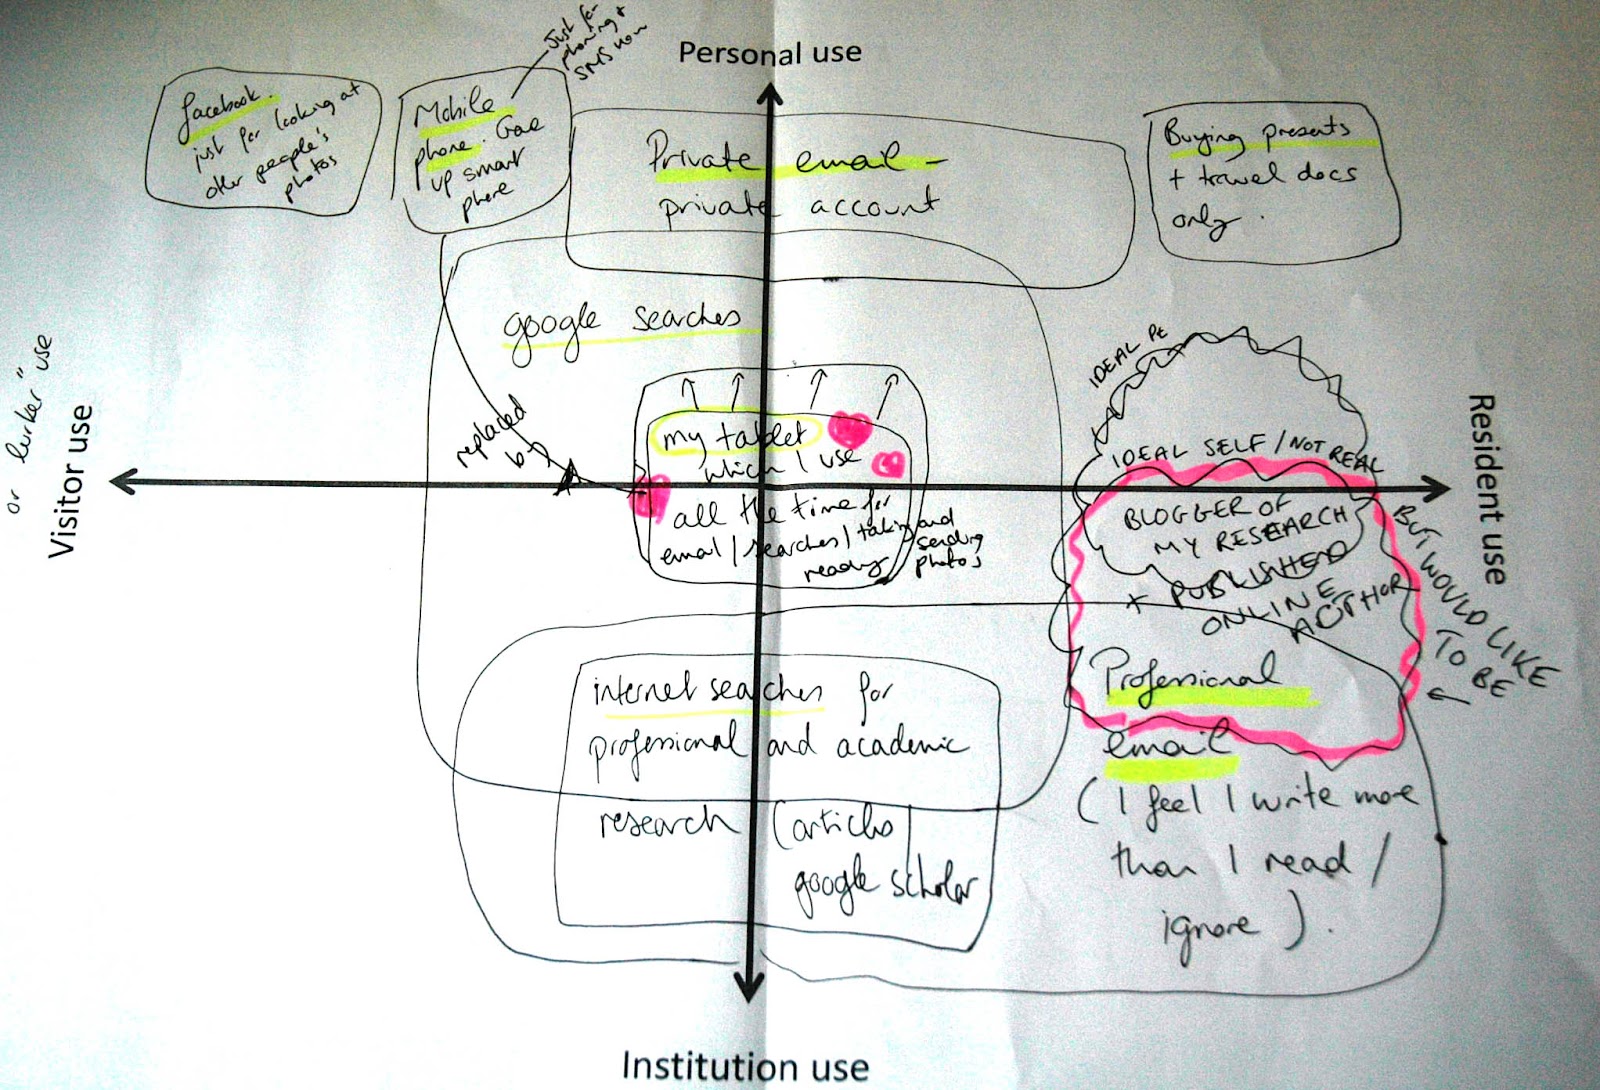 Personal use
Just for
phoning +
SMS now
facebook.
just for looking at
other people's
photos
Mobile
phone. Gave
up smart
phone
Private email -
private account
Buying presents
+ travel docs
only.
google searches
replaced
by
my tablet
which I use
all the time for
email / searches / taking and
sending
photos
reading
or "lurker" use
Visitor use
Resident use
IDEAL
IDEAL SELF / NOT REAL
BLOGGER OF
MY RESEARCH
+ PUBLISHED
ONLINE
AUTHOR
BUT WOULD LIKE
TO BE
internet searches for
professional and academic
research (articles
google scholar
Professional
email
( I feel I write more
than I read /
ignore ).
Institution use